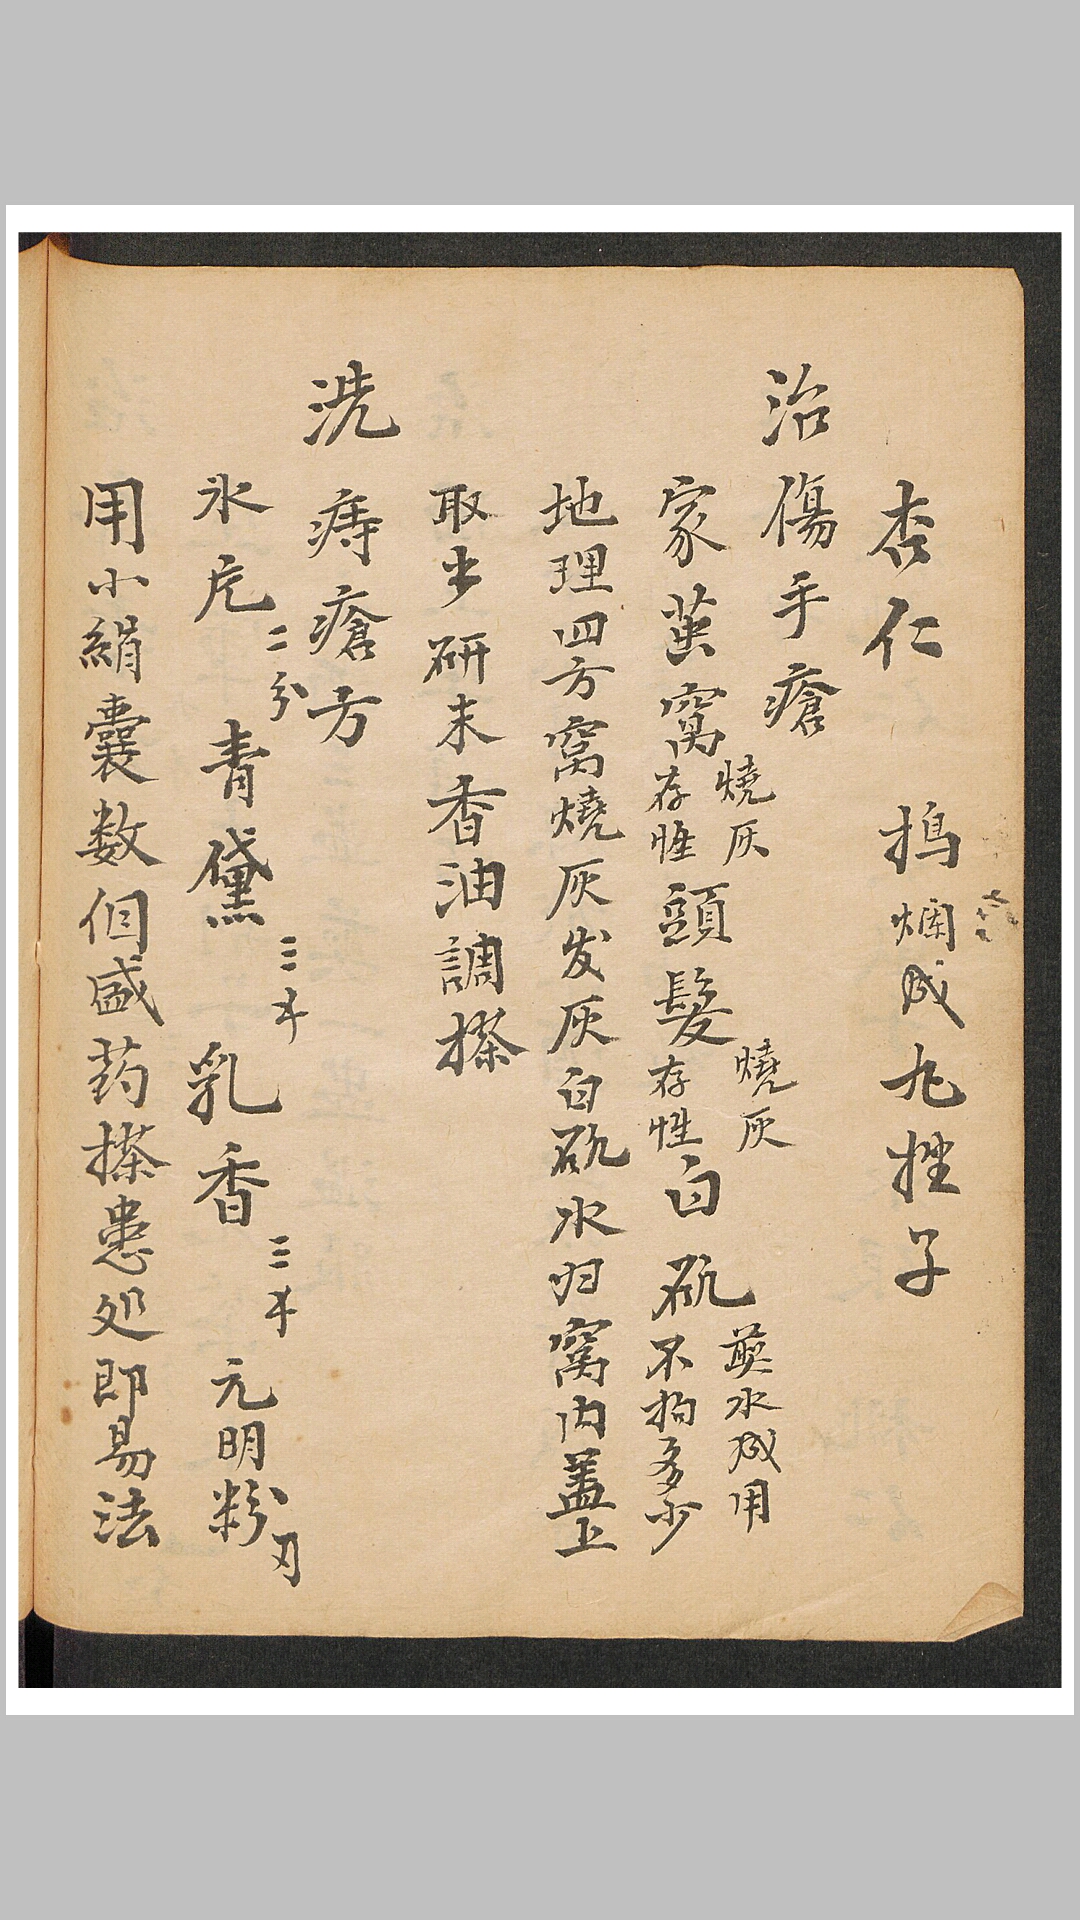 杏仁 搗爛成丸挫子
治傷手瘡
家茧窝燒灰存性頭髮燒灰存性白矾不拘多少
水成用
地理四方窝燒灰发灰白矾水归窝内蓋上
取出研末香油調搽
洗痔瘡方
氷片二分 青黛三 乳香三 元明粉
用小絹囊数個盛药搽患処即易法